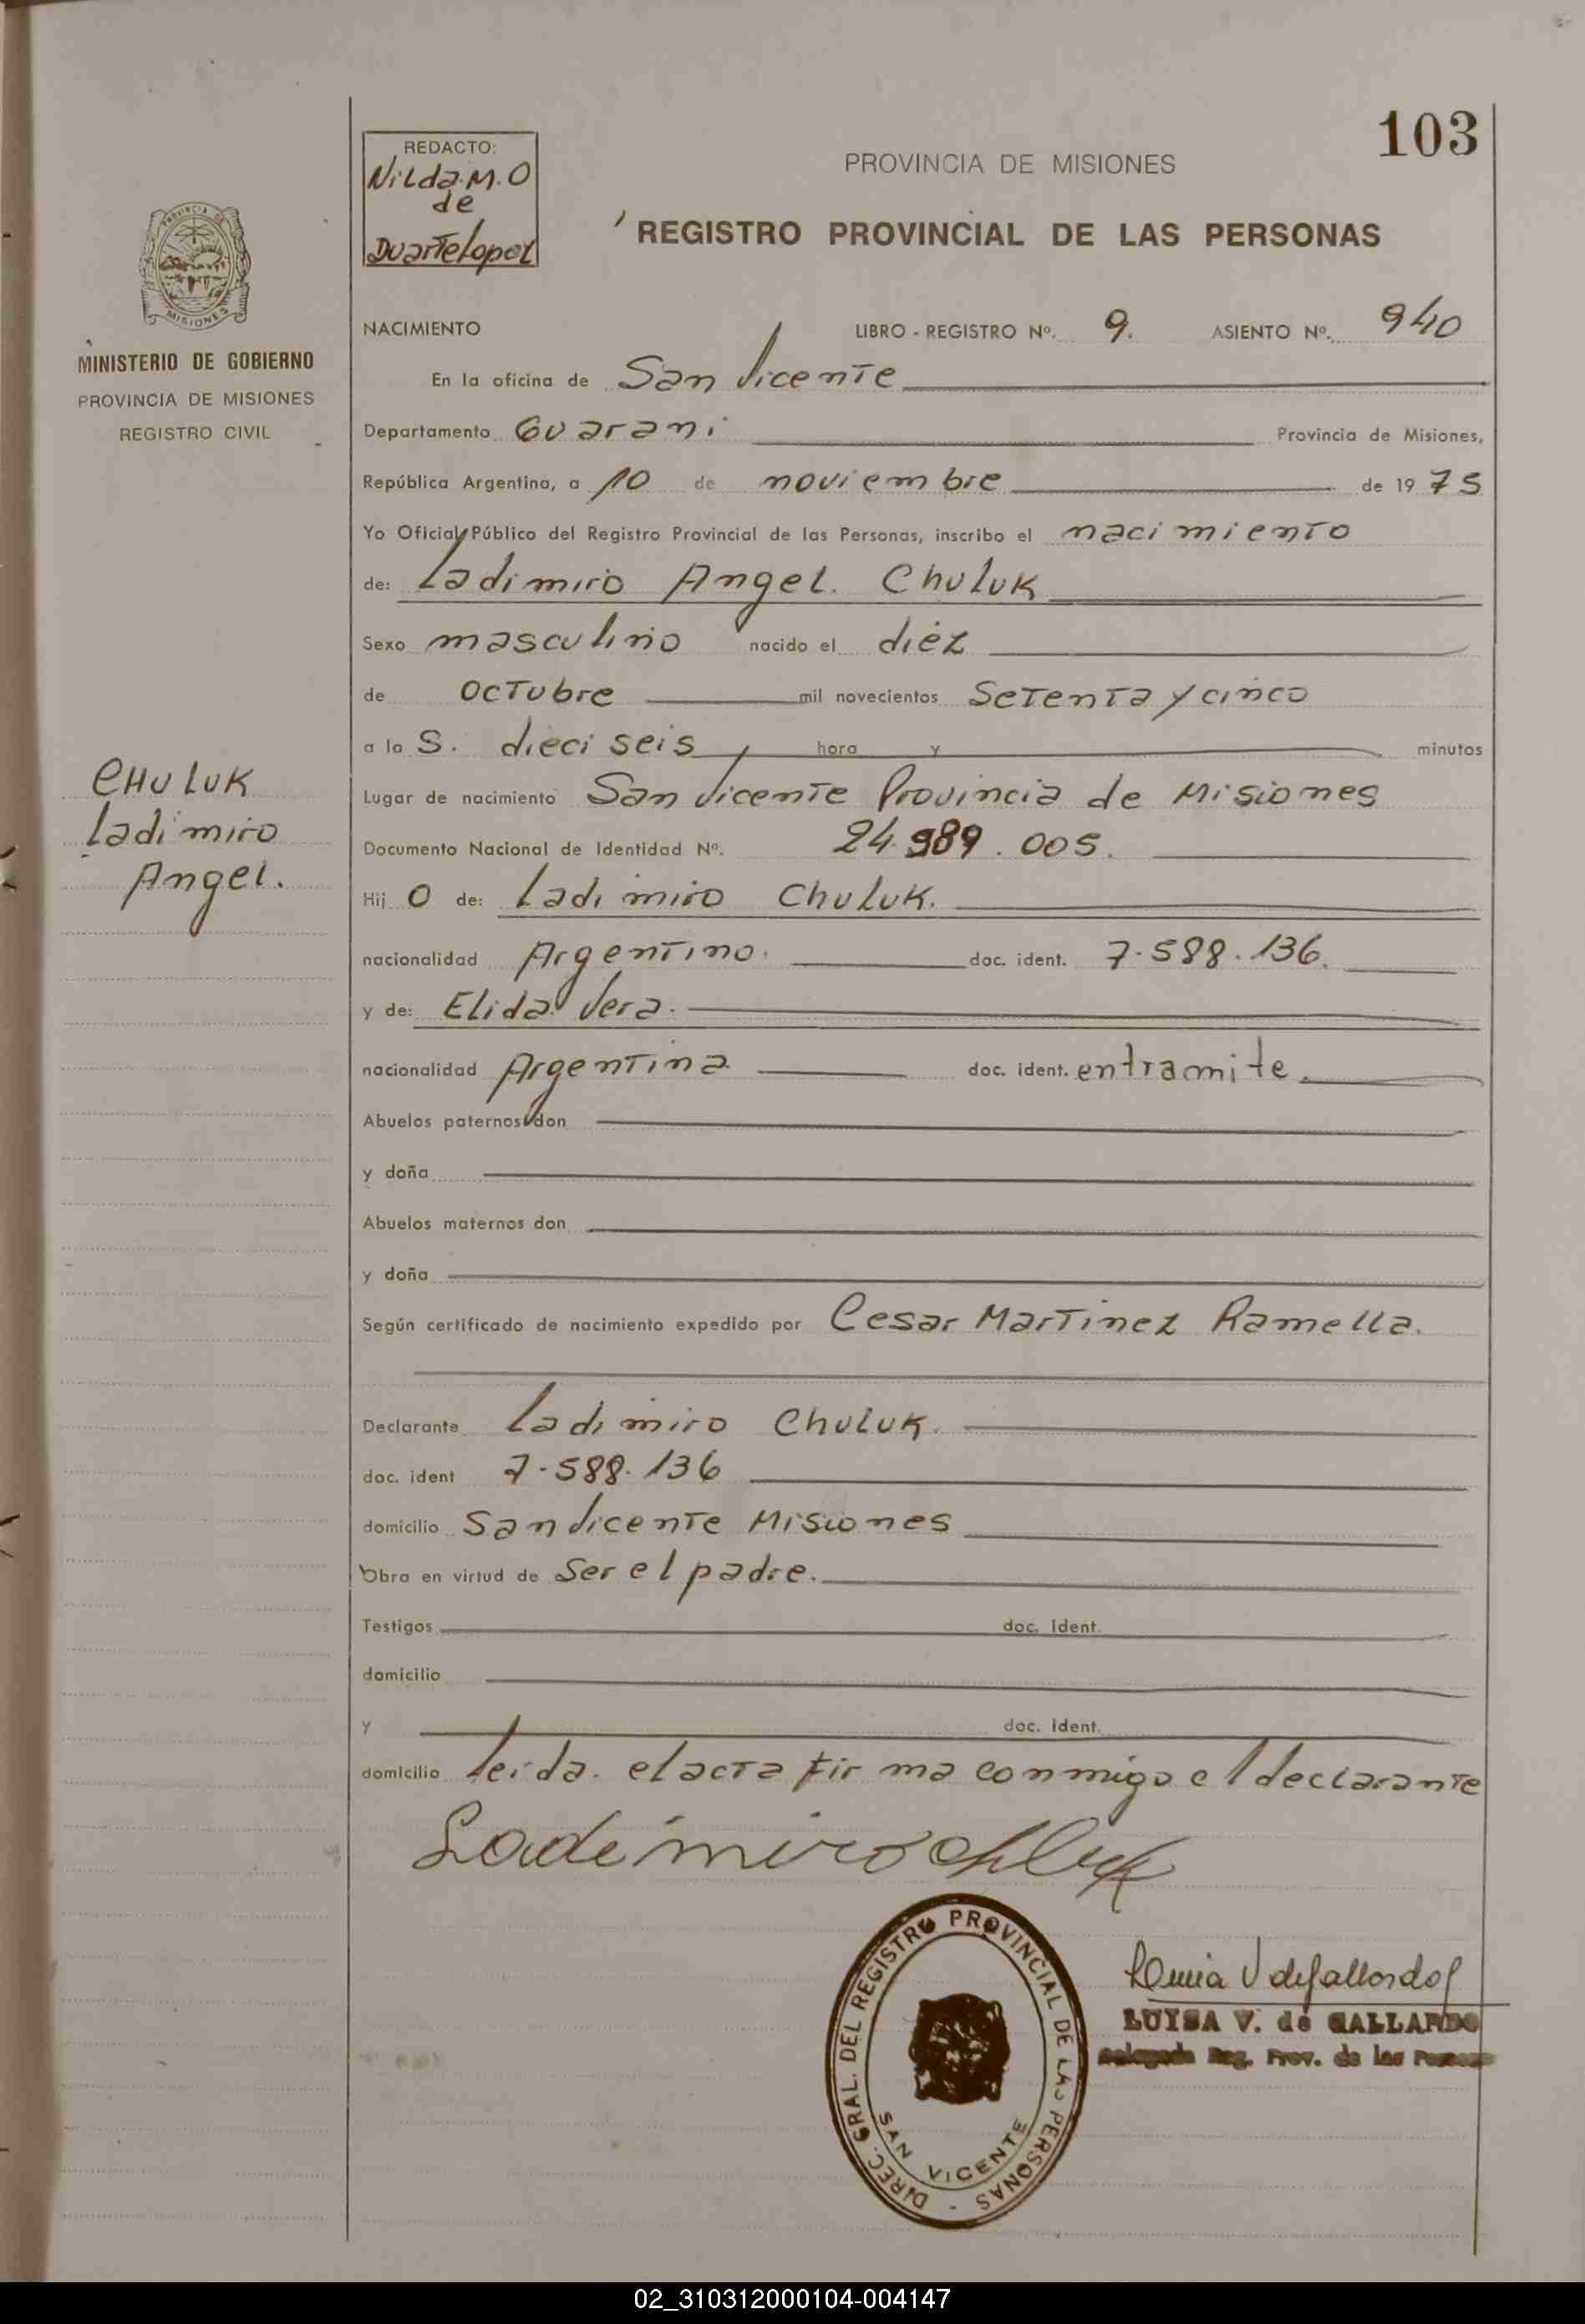 103
REDACTO:
Nilda.M.O
de
Duartelopez
PROVINCIA DE MISIONES
REGISTRO PROVINCIAL DE LAS PERSONAS
PROVINCIA DE
MISIONES
MINISTERIO DE GOBIERNO
PROVINCIA DE MISIONES
REGISTRO CIVIL
NACIMIENTO LIBRO - REGISTRO Nº. 9. ASIENTO Nº. 940
En la oficina de San Vicente
Departamento Guarani Provincia de Misiones,
República Argentina, a 10 de noviembre de 1975
Yo Oficial Público del Registro Provincial de las Personas, inscribo el nacimiento
de: Ladimiro Angel. Chuluk
Sexo masculino nacido el diez
de octubre mil novecientos setenta y cinco
a la S. dieci seis hora y minutos
CHULUK
Ladimiro
Angel.
Lugar de nacimiento San Vicente Provincia de Misiones
Documento Nacional de Identidad Nº. 24.989.005.
Hij o de: Ladimiro Chuluk.
nacionalidad Argentino. doc. ident. 7.588.136.
y de: Elida Vera.
nacionalidad Argentina doc. ident. entramite.
Abuelos paternos don
y doña
Abuelos maternos don
y doña
Según certificado de nacimiento expedido por Cesar Martinez Ramella.
Declarante Ladimiro Chuluk.
doc. ident 7.588.136
domicilio San Vicente Misiones
Obra en virtud de ser el padre.
Testigos doc. ident.
domicilio
y doc. ident.
domicilio leida. el acta firma conmigo el declarante
Lademiro Chluk
DIREC. GRAL. DEL REGISTRO PROVINCIAL DE LAS PERSONAS -
SAN VICENTE
Luisa V de Gallardo
LUISA V. de GALLARDO
Delegada Reg. Prov. de las Personas
02_310312000104-004147